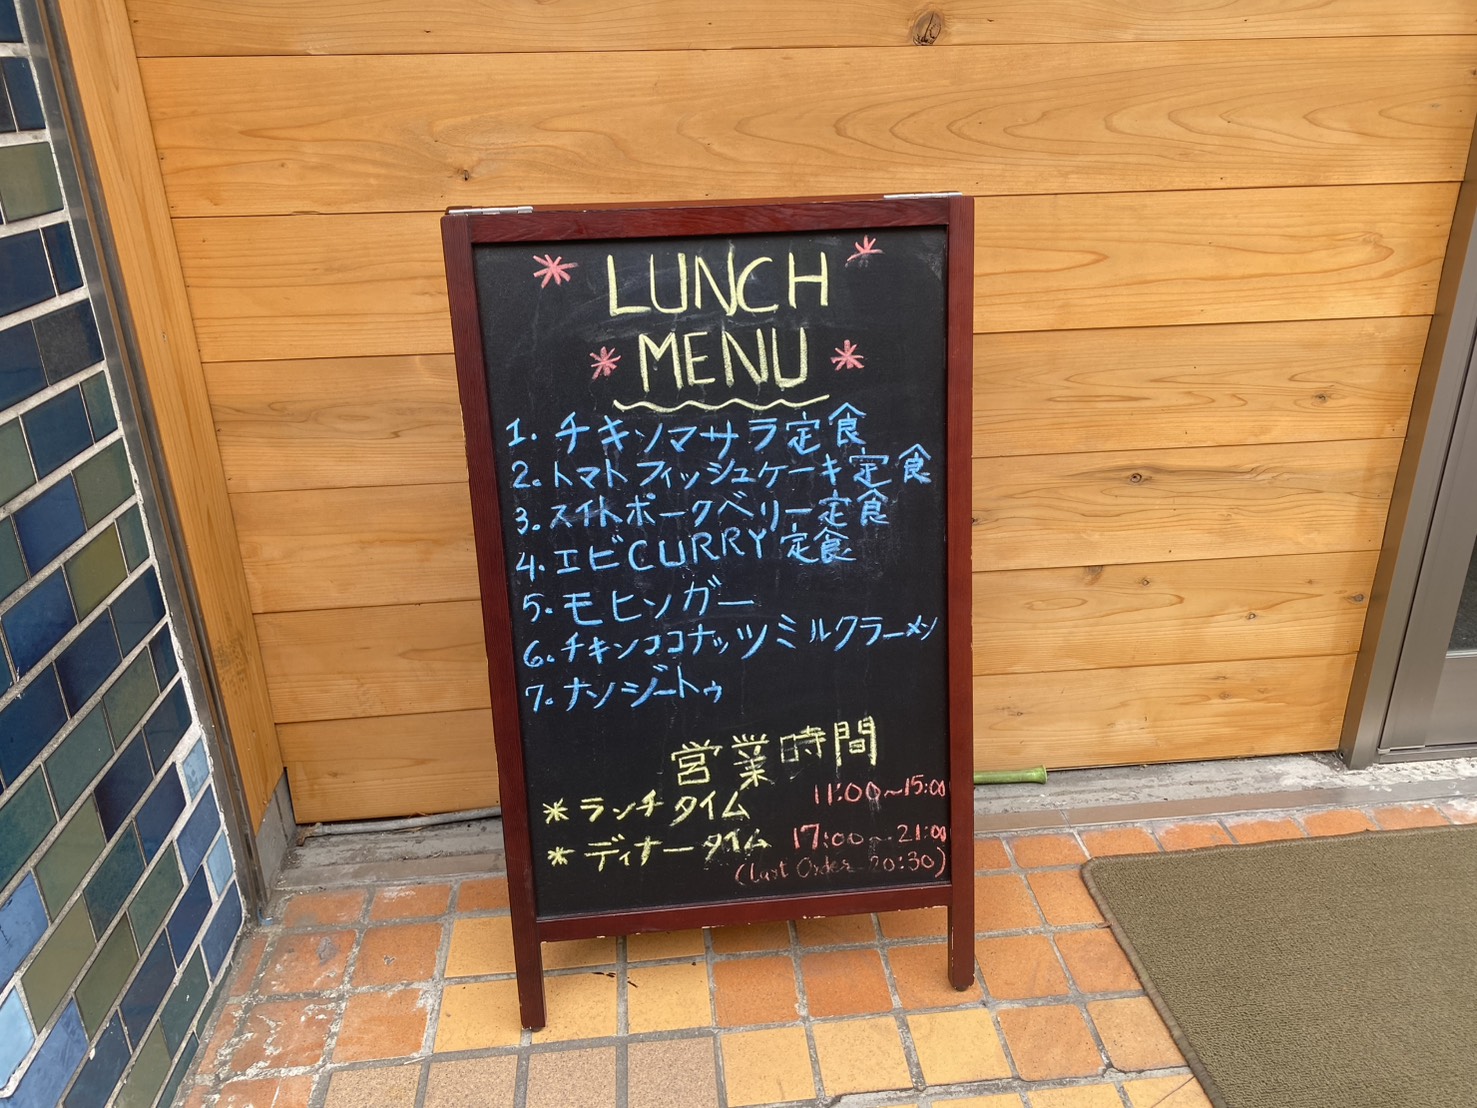 LUNCH
MENU
1. チキンマサラ定食
2. トマトフィッシュケーキ定食
3. スイトポークベリー定食
4. エビCURRY定食
5. モヒンガー
6. チキンココナッツミルクラーメン
7. ナンジートゥ
営業時間
*ランチタイム 11:00~15:00
*ディナータイム 17:00~21:00
(Last Order 20:30)